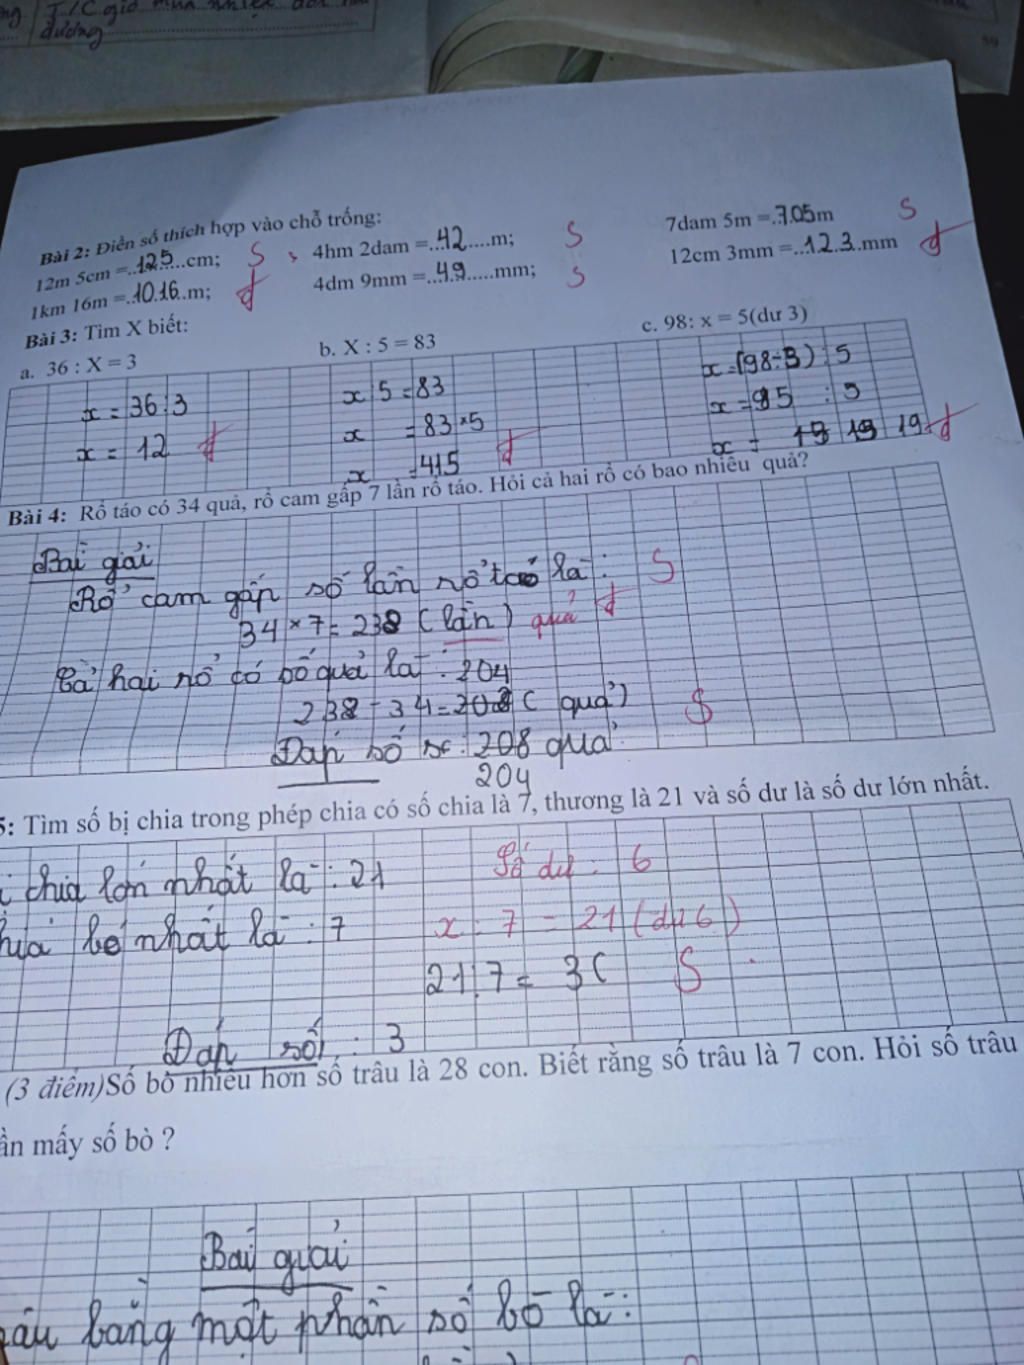 T/C gió
đương
Bài 2: Điền số thích hợp vào chỗ trống:
12m 5cm =..125.....cm; S
4hm 2dam =...42....m; S
7dam 5m =..705m S
1km 16m =..1016..m; đ
4dm 9mm =...49.....mm; S
12cm 3mm =...123.mm đ
Bài 3: Tìm X biết:
a. 36 : X = 3
b. X : 5 = 83
c. 98: x = 5(dư 3)
x = 36:3
x = 12 đ
x 5 = 83
x = 83×5
x = 415 đ
x = (98-3) : 5
x = 95 : 5
x = 19 19 19 đ
Bài 4: Rổ táo có 34 quả, rổ cam gấp 7 lần rổ táo. Hỏi cả hai rổ có bao nhiêu quả?
Bài giải
Rổ cam gấp số lần rổ táo là: S
34 × 7 = 238 (lần) quả đ
Cả hai rổ có số quả là: 204
238 - 34 = 208 ( quả) S
Đáp số : 208 quả
204
5: Tìm số bị chia trong phép chia có số chia là 7, thương là 21 và số dư là số dư lớn nhất.
chia lớn nhất là : 21
Số dư : 6
bé nhất là : 7
x : 7 = 21 (dư 6)
21:7 = 3( S
Đáp số : 3
(3 điểm)Số bò nhiều hơn số trâu là 28 con. Biết rằng số trâu là 7 con. Hỏi số trâu
ần mấy số bò ?
Bài giải
bằng một phần số bò là: